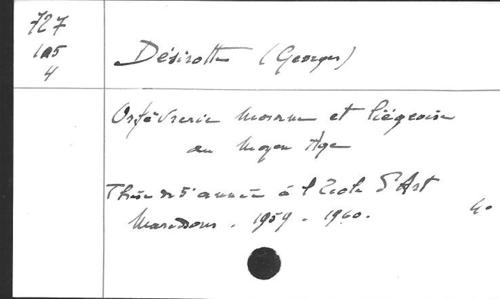 727
1a5
4
Désirotte (Georges)
Orfèvrerie Mosane et liégeoise
au Moyen Age
Thèse de 5e année à l'Ecole d'Art
Maredsous. 1959-1960.
4o